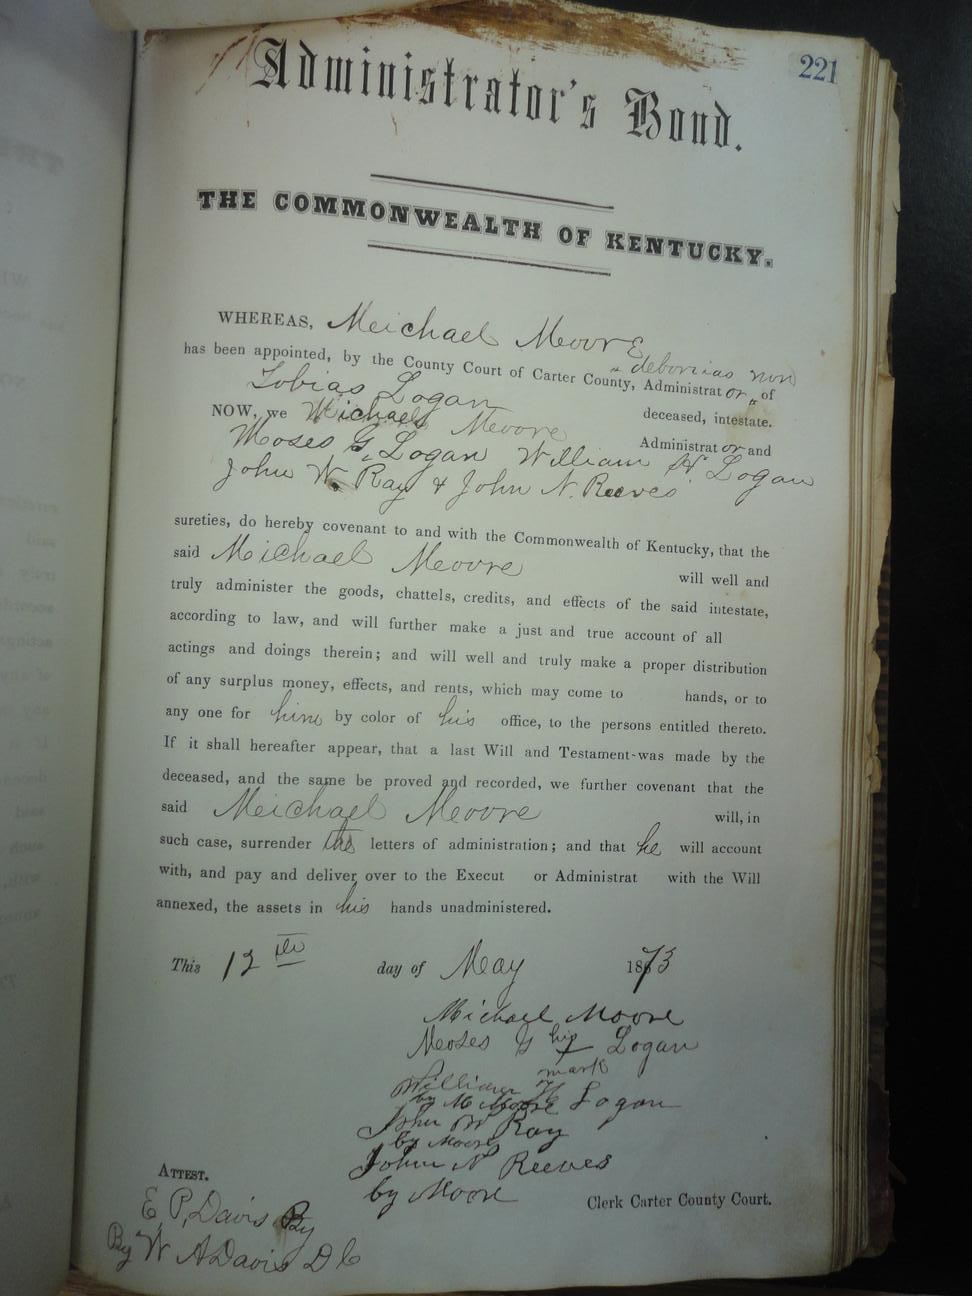 221
Administrator's Bond.
THE COMMONWEALTH OF KENTUCKY.
WHEREAS, Meichael Moore
has been appointed, by the County Court of Carter County, Administrator debonias non of
Tobias Logan deceased, intestate.
NOW, we Michael Moore Administrator and
Moses G. Logan William H. Logan
John W. Ray & John N. Reeves
sureties, do hereby covenant to and with the Commonwealth of Kentucky, that the
said Michael Moore will well and
truly administer the goods, chattels, credits, and effects of the said intestate,
according to law, and will further make a just and true account of all
actings and doings therein; and will well and truly make a proper distribution
of any surplus money, effects, and rents, which may come to hands, or to
any one for him by color of his office, to the persons entitled thereto.
If it shall hereafter appear, that a last Will and Testament was made by the
deceased, and the same be proved and recorded, we further covenant that the
said Meichael Moore will, in
such case, surrender the letters of administration; and that he will account
with, and pay and deliver over to the Execut or Administrat with the Will
annexed, the assets in his hands unadministered.
This 12th day of May 1873
Michael Moore
Moses G his x Logan
mark
William H Logan
by M Moore
John W Ray
by Moore
John N Reeves
by Moore
ATTEST.
Clerk Carter County Court.
E. P. Davis By
By W A Davis D C